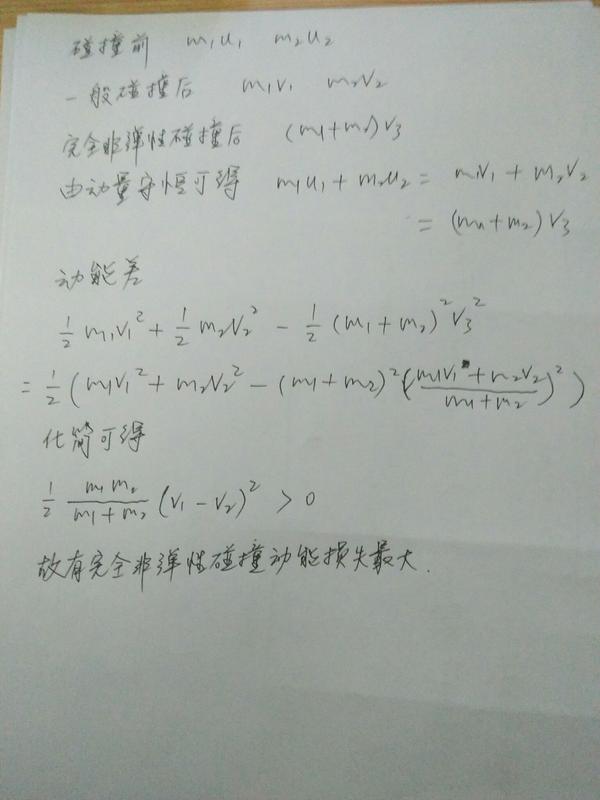 碰撞前 m₁u₁ m₂u₂
一般碰撞后 m₁v₁ m₂v₂
完全非弹性碰撞后 (m₁+m₂)v₃
由动量守恒可得 m₁u₁+m₂u₂= m₁v₁+m₂v₂
= (m₁+m₂)v₃
动能差
½m₁v₁²+½m₂v₂²-½(m₁+m₂)²v₃²
=½(m₁v₁²+m₂v₂²-(m₁+m₂)²((m₁v₁+m₂v₂)/(m₁+m₂))²)
化简可得
½ m₁m₂/(m₁+m₂) (v₁-v₂)²>0
故有完全非弹性碰撞动能损失最大.